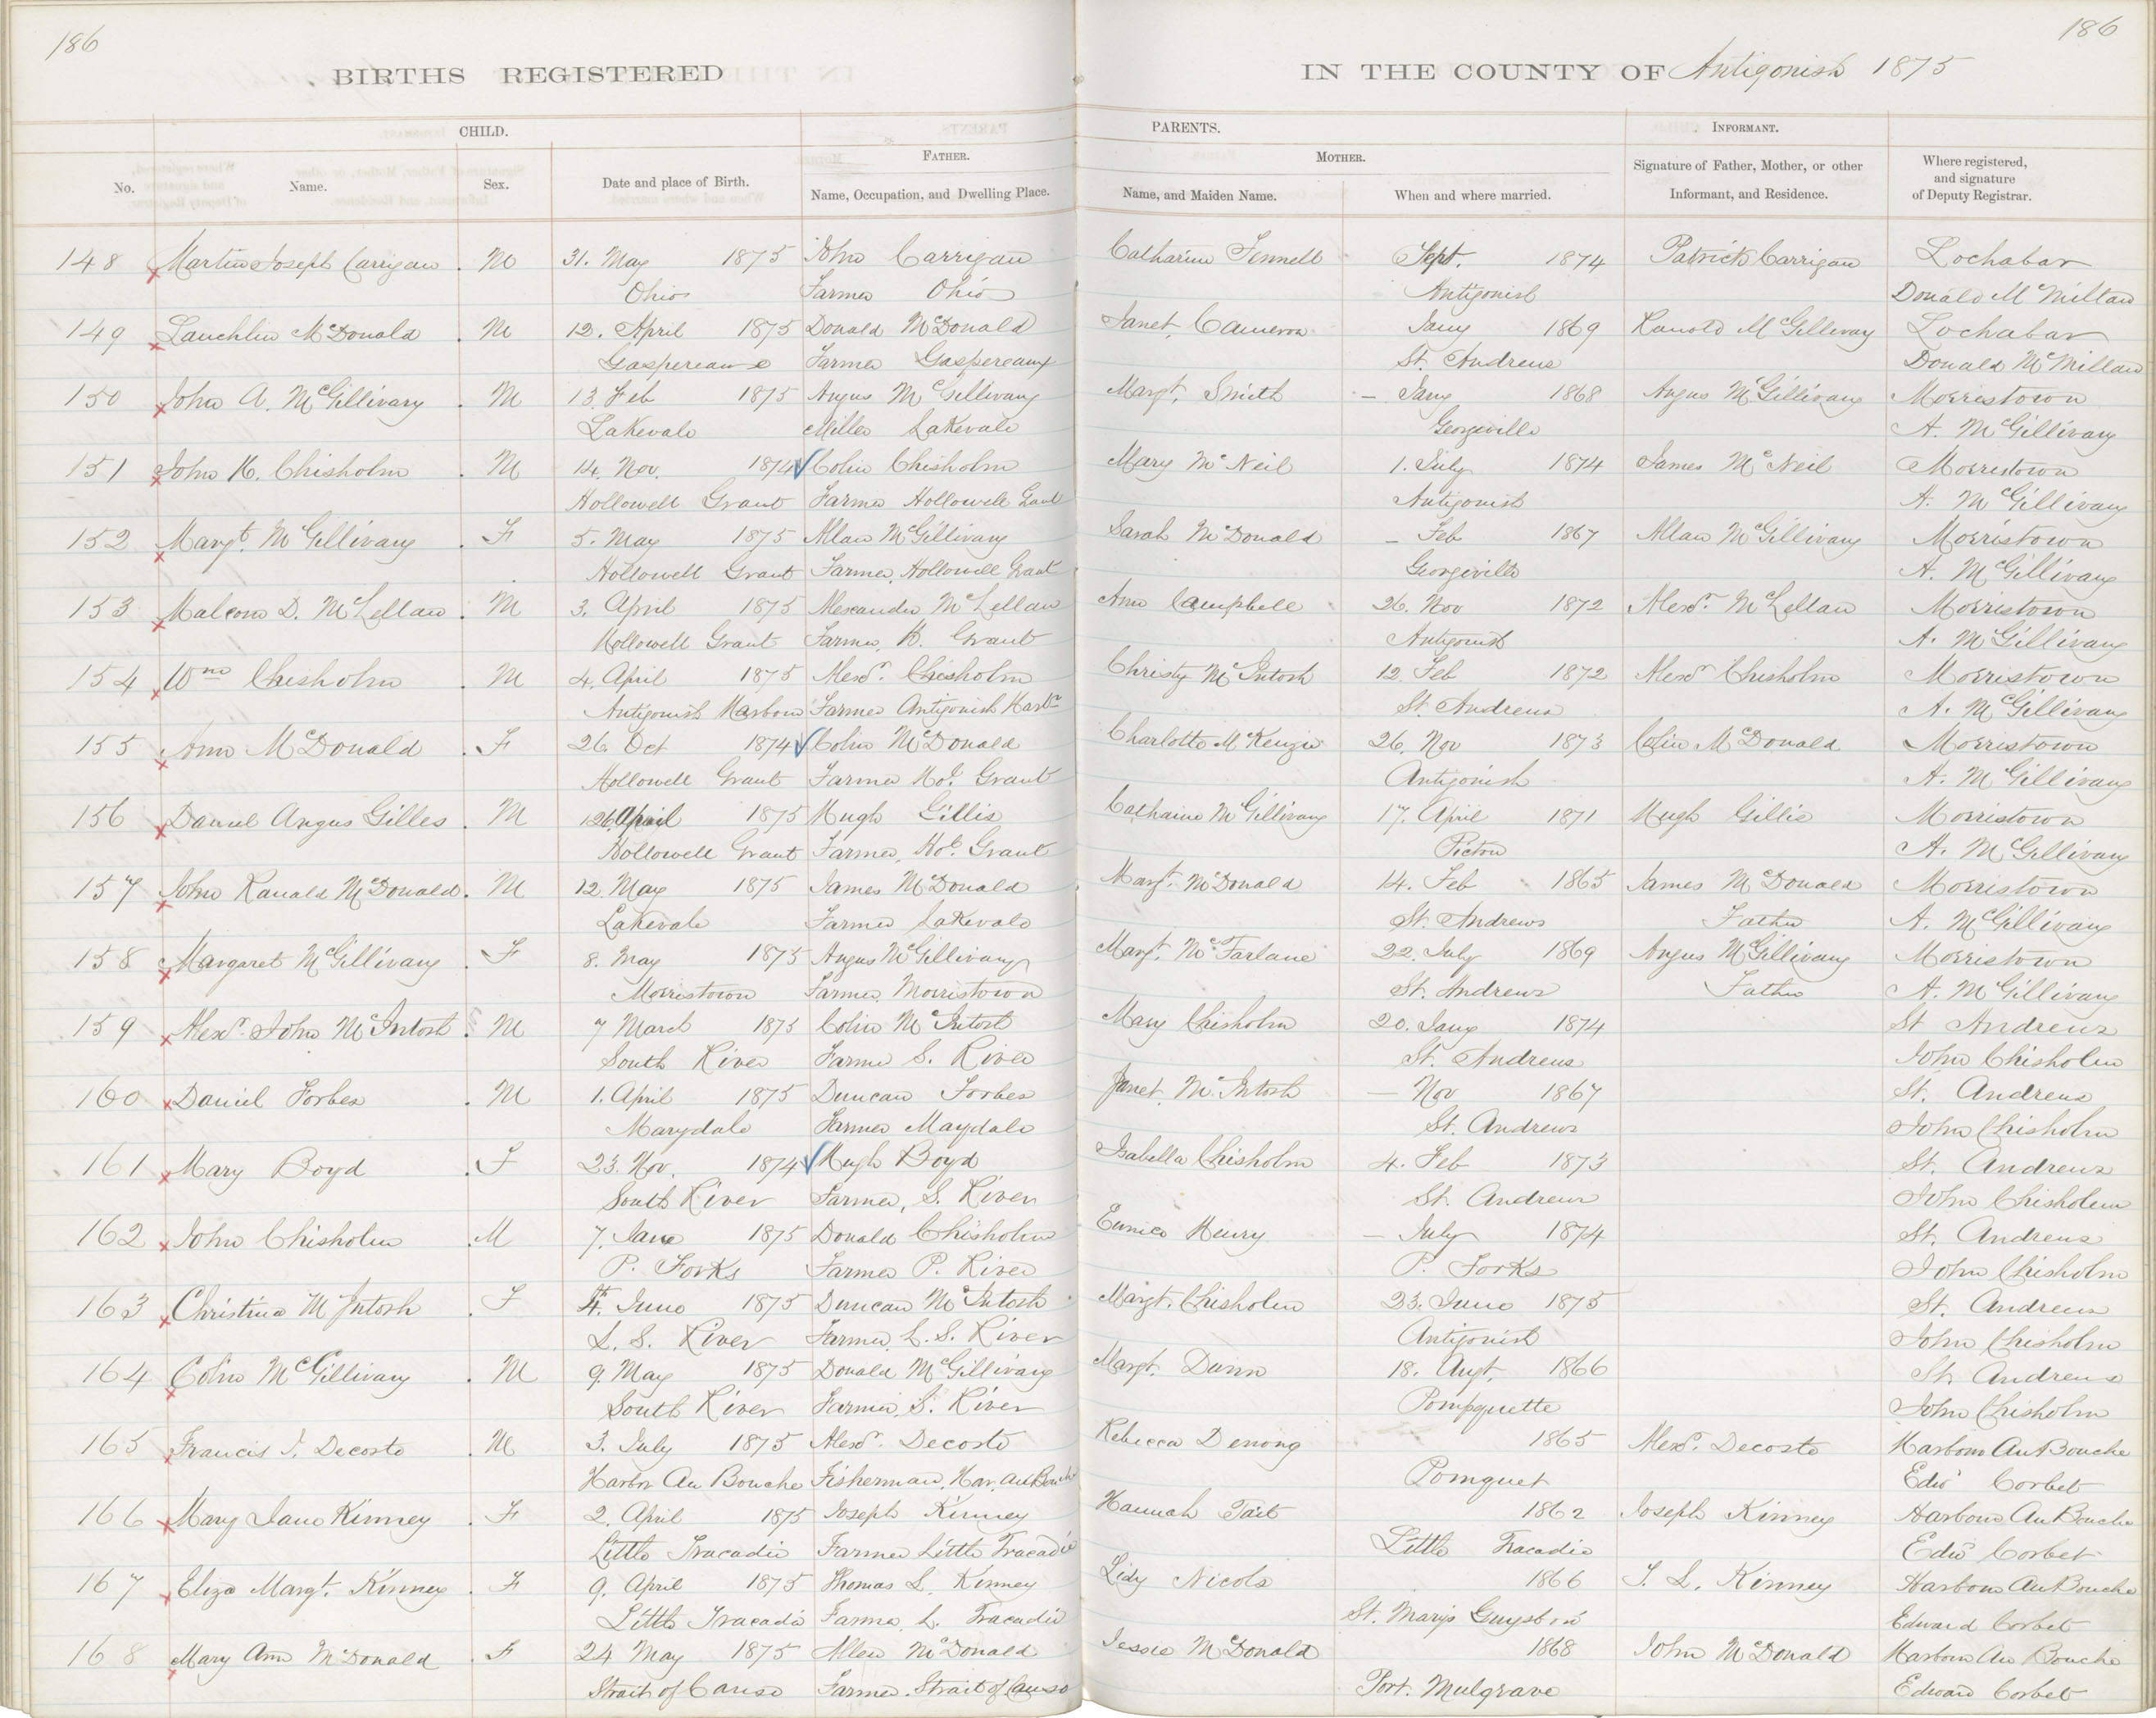 186
186
BIRTHS REGISTERED
IN THE COUNTY OF Antigonish 1875
CHILD.
PARENTS.
INFORMANT.
FATHER.
MOTHER.
No.
Name.
Sex.
Date and place of Birth.
Name, Occupation, and Dwelling Place.
Name, and Maiden Name.
When and where married.
Signature of Father, Mother, or other
Informant, and Residence.
Where registered,
and signature
of Deputy Registrar.
148 Martin Joseph Carrigan . M 31. May 1875 John Carrigan Catharine Fennell Sept. 1874 Patrick Carrigan Lochabar
Ohio Farmer Ohio Antigonish Donald McMillan
149 Lauchlin McDonald . M 12. April 1875 Donald McDonald Janet Cameron Jany 1869 Ranold McGillivray Lochabar
Gaspereaux Farmer Gaspereaux St. Andrews Donald McMillan
150 John A. McGillivary . M 13 Feb 1875 Angus McGillivary Margt. Smith – Jany 1868 Angus McGillivary Morristown
Lakevale Miller Lakevale Georgeville A. McGillivary
151 John H. Chisholm . M 14. Nov. 1874 Colin Chisholm Mary McNeil 1. July 1874 James McNeil Morristown
Hollowell Grant Farmer Hollowell Grant Antigonish A. McGillivary
152 Margt. McGillivary . F 5. May 1875 Allan McGillivary Sarah McDonald – Feb 1867 Allan McGillivary Morristown
Hollowell Grant Farmer, Hollowell Grant Georgeville A. McGillivary
153 Malcom D. McLellan . M 3. April 1875 Alexander McLellan Ann Campbell 26. Nov 1872 Alexr. McLellan Morristown
Hollowell Grant Farmer, H. Grant Antigonish A. McGillivary
154 Wm Chisholm . M 4. April 1875 Alexr. Chisholm Christy McIntosh 12. Feb 1872 Alexr Chisholm Morristown
Antigonish Harbour Farmer Antigonish Harbr St. Andrews A. McGillivary
155 Ann McDonald . F 26 Oct 1874 Colin McDonald Charlotte McKenzie 26. Nov 1873 Colin McDonald Morristown
Hollowell Grant Farmer Hol. Grant Antigonish A. McGillivary
156 Daniel Angus Gilles . M 26 April 1875 Hugh Gillis Catharine McGillivary 17. April 1871 Hugh Gillis Morristown
Hollowell Grant Farmer, Hol. Grant Pictou A. McGillivary
157 John Ranald McDonald . M 12. May 1875 James McDonald Margt. McDonald 14. Feb 1865 James McDonald Morristown
Lakevale Farmer Lakevale St. Andrews Father A. McGillivary
158 Margaret McGillivary . F 8. May 1875 Angus McGillivary Margt. McFarlane 22. July 1869 Angus McGillivary Morristown
Morristown Farmer, Morristown St. Andrews Father A. McGillivary
159 Alexr. John McIntosh . M 7 March 1875 Colin McIntosh Mary Chisholm 20. Jany 1874 St Andrews
South River Farmer S. River St. Andrews John Chisholm
160 Daniel Forbes . M 1. April 1875 Duncan Forbes Janet McIntosh – Nov 1867 St. Andrews
Marydale Farmer Maydale St. Andrews John Chisholm
161 Mary Boyd . F 23. Nov. 1874 Hugh Boyd Isabella Chisholm 4. Feb 1873 St. Andrews
South River Farmer, S. River St. Andrews John Chisholm
162 John Chisholm . M 7. June 1875 Donald Chisholm Eunice Henry – July 1874 St. Andrews
P. Forks Farmer P. River P. Forks John Chisholm
163 Christina McIntosh . F 4. June 1875 Duncan McIntosh Margt. Chisholm 23. June 1875 St. Andrews
L. S. River Farmer, L. S. River Antigonish John Chisholm
164 Colin McGillivary . M 9. May 1875 Donald McGillivary Margt. Dunn 18. Augt. 1866 St. Andrews
South River Farmer, S. River Pompquette John Chisholm
165 Francis J. Decoste . M 3. July 1875 Alexr. Decoste Rebecca Denong 1865 Alexr. Decoste Harbour Au Bouche
Harbor Au Bouche Fisherman, Har. au Bouche Pomquet Edwd Corbet
166 Mary Jane Kinney . F 2. April 1875 Joseph Kinney Hannah Tait 1862 Joseph Kinney Harbour Au Bouche
Little Tracadie Farmer Little Tracadie Little Tracadie Edwd Corbet
167 Eliza Margt. Kinney . F 9. April 1875 Thomas L. Kinney Lidy Nicols 1866 T. L. Kinney Harbour Au Bouche
Little Tracadie Farmer, L. Tracadie St. Marys Guysboro Edward Corbet
168 Mary Ann McDonald . F 24 May 1875 Allen McDonald Jessie McDonald 1868 John McDonald Harbour Au Bouche
Strait of Canso Farmer. Strait of Canso Port. Mulgrave Edward Corbet